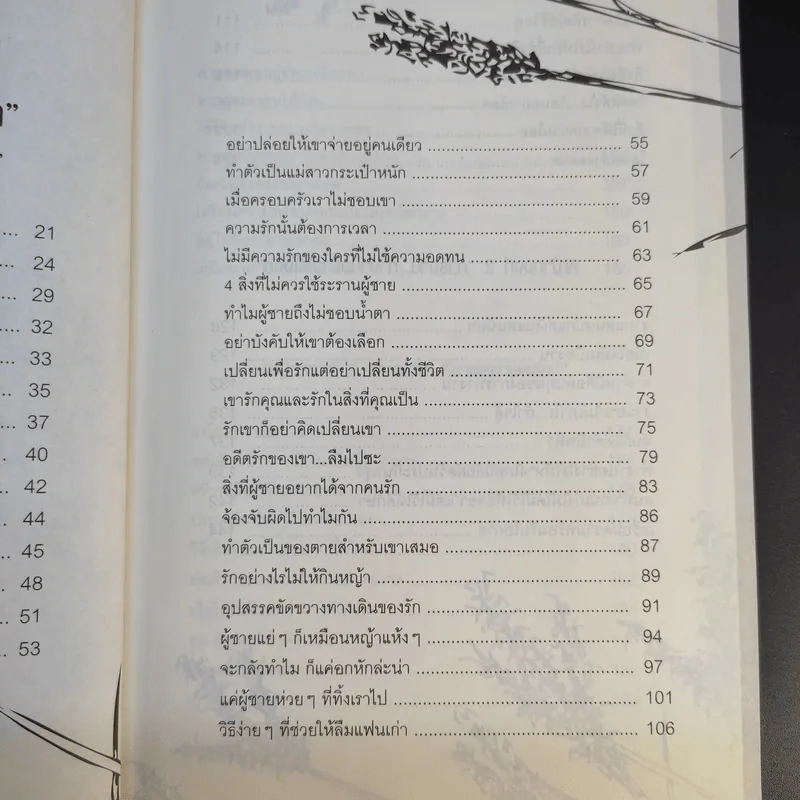 21
24
29
32
33
35
37
40
42
44
45
48
51
53
อย่าปล่อยให้เขาจ่ายอยู่คนเดียว ........................................ 55
ทำตัวเป็นแม่สาวกระเป๋าหนัก ........................................ 57
เมื่อครอบครัวเราไม่ชอบเขา ........................................ 59
ความรักนั้นต้องการเวลา ........................................ 61
ไม่มีความรักของใครที่ไม่ใช้ความอดทน ............................. 63
4 สิ่งที่ไม่ควรใช้ระรานผู้ชาย ........................................ 65
ทำไมผู้ชายถึงไม่ชอบน้ำตา ........................................ 67
อย่าบังคับให้เขาต้องเลือก ........................................ 69
เปลี่ยนเพื่อรักแต่อย่าเปลี่ยนทั้งชีวิต ................................ 71
เขารักคุณและรักในสิ่งที่คุณเป็น ..................................... 73
รักเขาก็อย่าคิดเปลี่ยนเขา ........................................ 75
อดีตรักของเขา...ลืมไปซะ ........................................ 79
สิ่งที่ผู้ชายอยากได้จากคนรัก ........................................ 83
จ้องจับผิดไปทำไมกัน ........................................ 86
ทำตัวเป็นของตายสำหรับเขาเสมอ ................................ 87
รักอย่างไรไม่ให้กินหญ้า ........................................ 89
อุปสรรคขัดขวางทางเดินของรัก ................................... 91
ผู้ชายแย่ ๆ ก็เหมือนหญ้าแห้ง ๆ ................................... 94
จะกลัวทำไม ก็แค่อกหักล่ะน่า ..................................... 97
แค่ผู้ชายห่วย ๆ ที่ทิ้งเราไป ........................................ 101
วิธีง่าย ๆ ที่ช่วยให้ลืมแฟนเก่า ..................................... 106